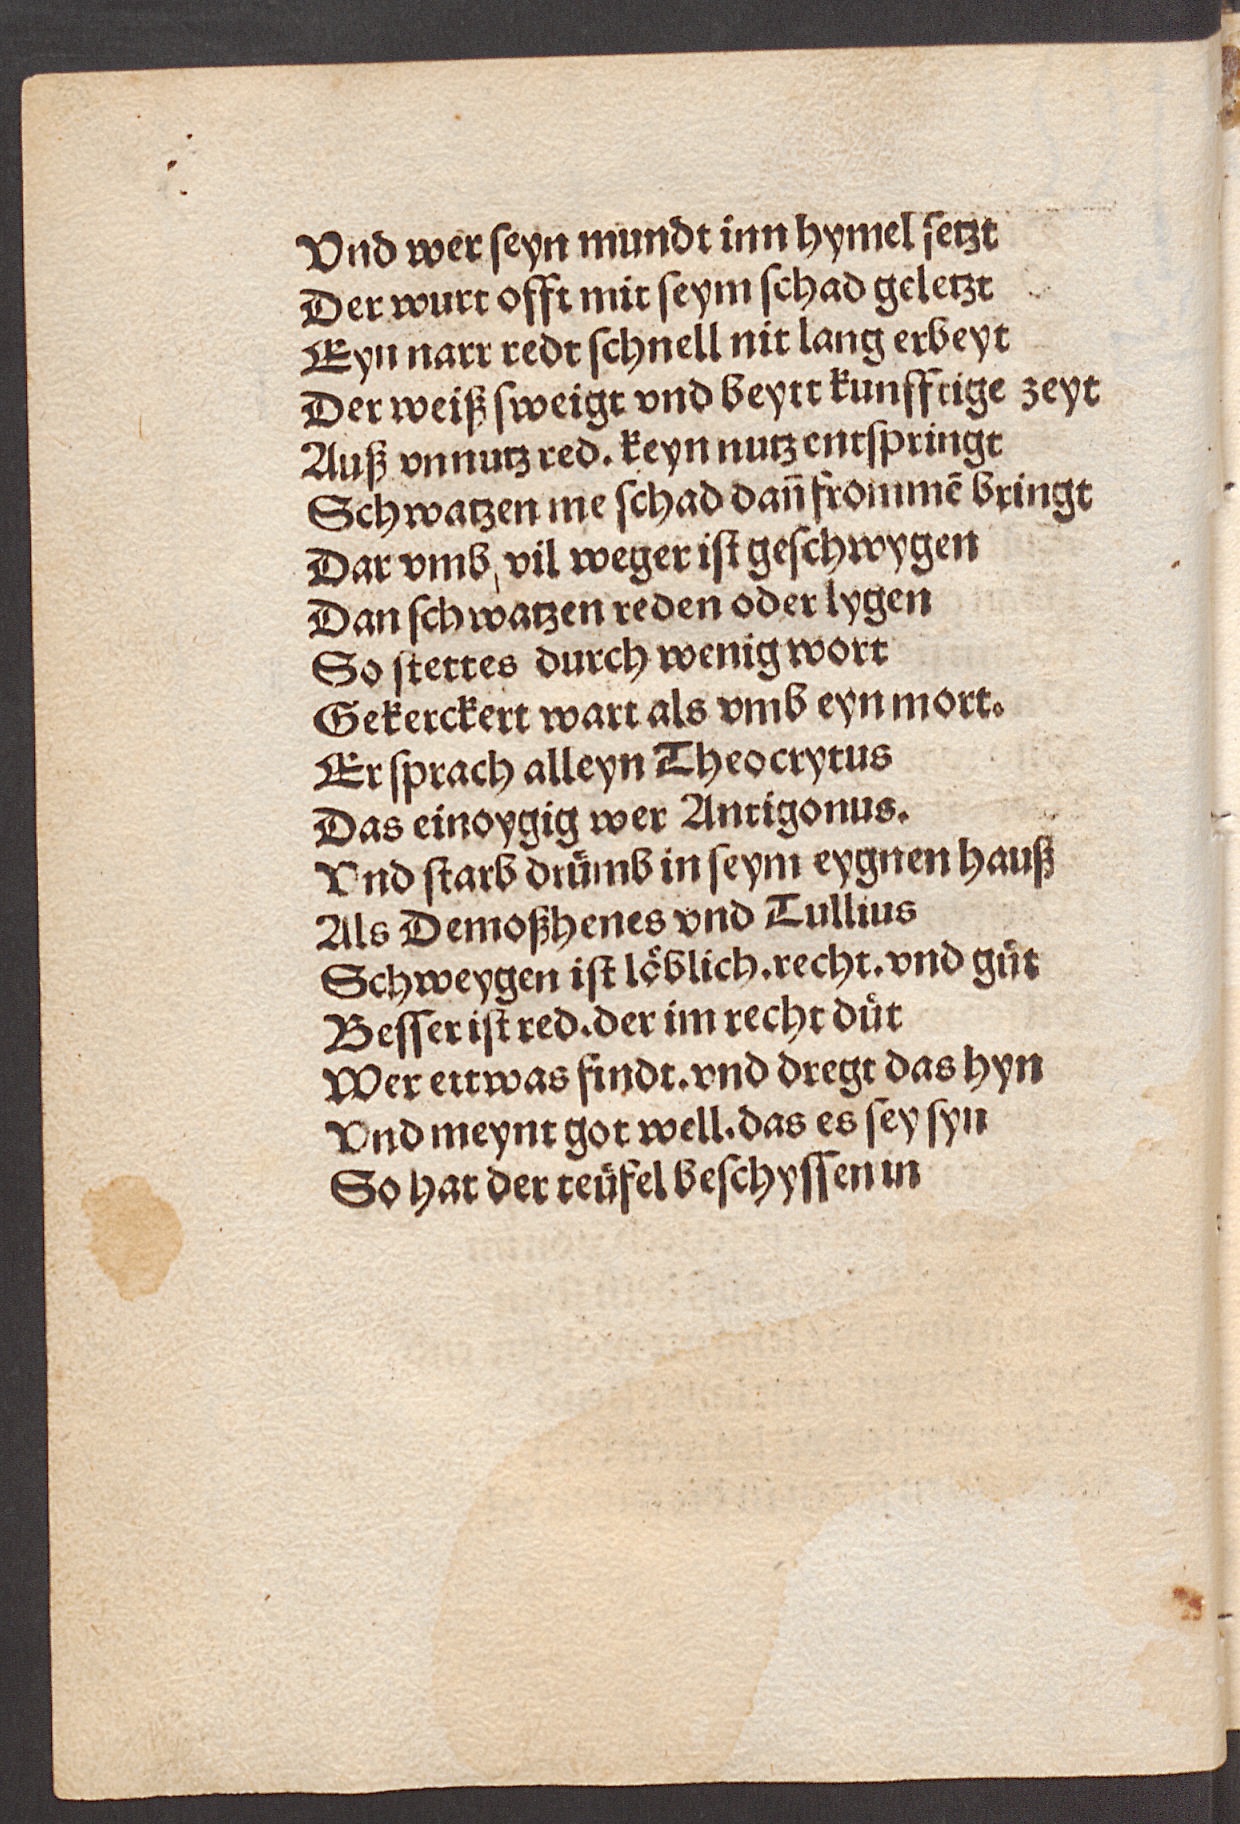 Vnd wer ſeyn mundt inn hymel ſetzt
Der wurt offt mit ſeym ſchad geletzt
Eyn narr redt ſchnell nit lang erbeyt
Der weiß ſweigt vnd beytt kunfftige zeyt
Auß vnnutz red. keyn nutz entſpringt
Schwatzen me ſchad dañ frommē bringt
Dar vmb, vil weger iſt geſchwygen
Dan ſchwatzen reden oder lygen
So ſtettes durch wenig wort
Gekerckert wart als vmb eyn mort.
Er ſprach alleyn Theocrytus
Das einoygig wer Antigonus.
Vnd ſtarb drumͤb in ſeym eygnen hauß
Als Demoßhenes vnd Tullius
Schweygen iſt loͤblich. recht. vnd guͤt
Beſſer iſt red. der im recht duͤt
Wer ettwas findt. vnd dregt das hyn
Vnd meynt got well. das es ſey ſyn
So hat der teuͤfel beſchyſſen in